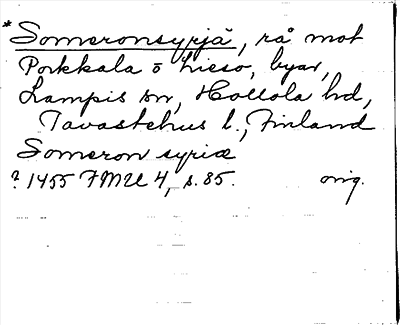 *Someronsyrjä, rå mot
Porkkala o Lieso, byar,
Lampis sn, Hollola hd,
Tavastehus l., Finland
Someron syriæ
? 1455 FMU 4, s. 85. orig.